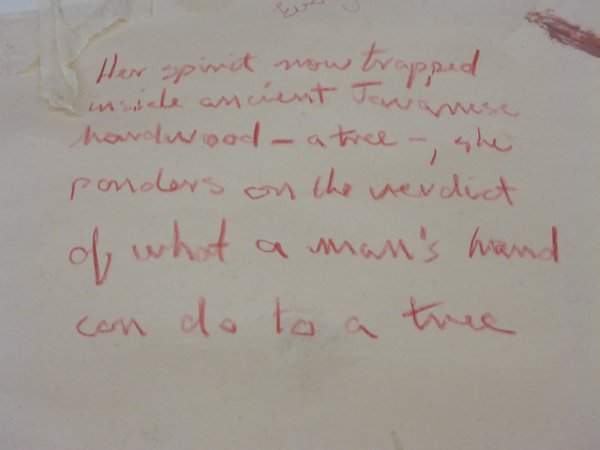 Her spirit now trapped
inside ancient Javanese
hardwood – a tree –, she
ponders on the verdict
of what a man's hand
can do to a tree